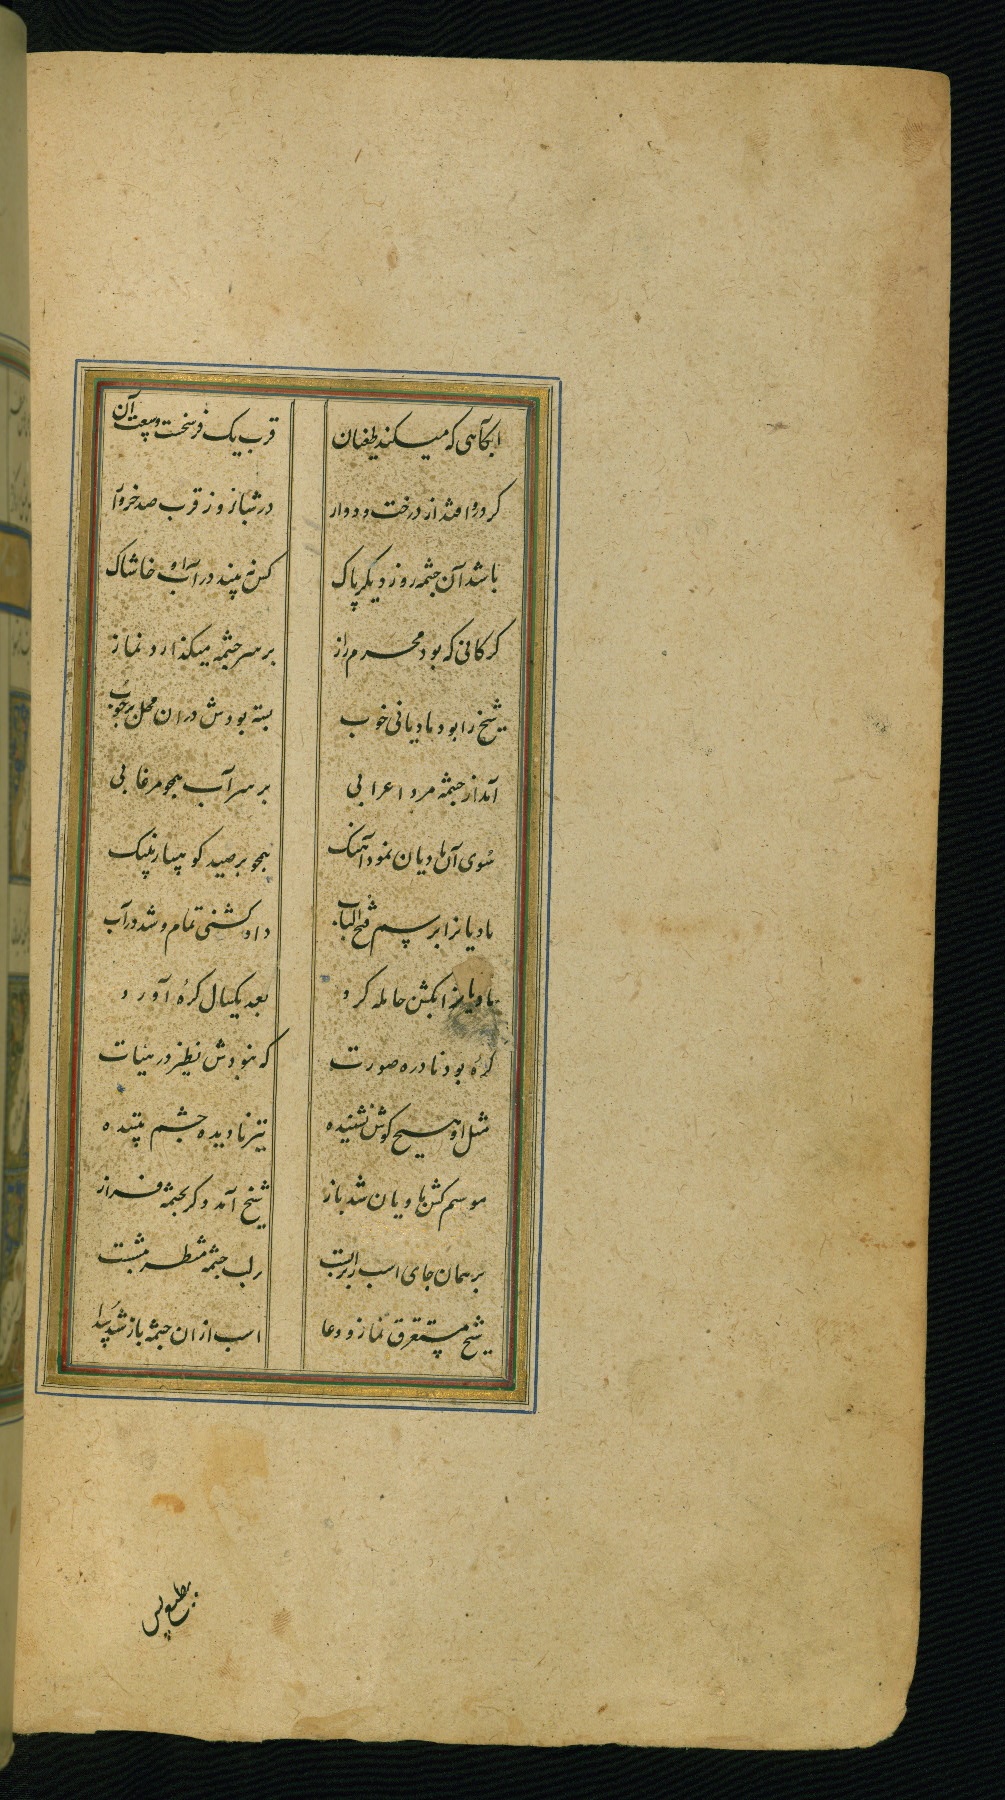 آبگاهی که میکند طغیان قرب یک فرسخت وسعت آن
کر درو افتد از درخت و دوار در شبانروز قرب صد خروار
باشد آن چشمه روز دیکر پاک کس نه بیند در آب او خاشاک
کرکانی که بود محرم راز بر سر چشمه میکذارد نماز
شیخ را بود مادیانی خوب بسته بودش در ان محل بر چوب
آمد از چشمه مرد اعرابی بر سر آب همچو مرغابی
سوی آن مادیان نمود آهنک همچو بر صید کوهسار پلنک
مادیانرا برسم فتح الباب داد کشنی تمام و شد در آب
مادیانرا بکشن حامله کرد بعد یکسال کره آورد
کره بود نادره صورت که نبودش نظیر در هیات
مثل او هیچ کوش نشنیده نیز نادیده چشم بیننده
موسم کشن مادیان شد باز شیخ آمد دکر بچشمه فراز
بر همان جای اسب را بربست بر لب چشمه منتظر بنشست
شیخ مستغرق نماز و دعا اسب از ان چشمه باز شد پیدا
بطمع پس